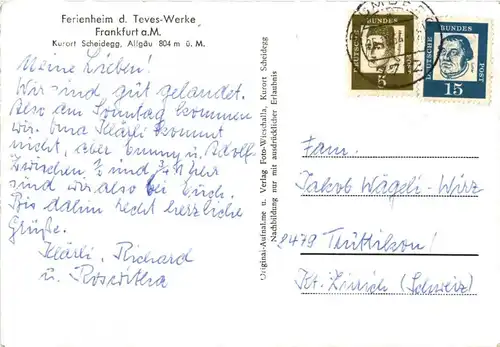 Ferienheim d. Teves-Werke
Frankfurt a.M.
Kurort Scheidegg, Allgäu 804 m ü. M.
Meine Lieben!
Wir sind gut gelandet.
Also am Sonntag kommen
wir. Oma Klärli kommt
nicht, aber Emmy u. Adolf.
Zwischen und Uhr
sind wir also bei Euch.
Bis dahin recht herzliche
Grüße.
Klärli, Richard
u. Roswitha
Original-Aufnahme u. Verlag Foto-Wirschalla, Kurort Scheidegg
Nachbildung nur mit ausdrücklicher Erlaubnis
DEUTSCHE BUNDES POST
5
DEUTSCHE BUNDES POST
15
Fam.
Jakob Wägeli-Wirz
8479 Trüttikon!
Kt. Zürich (Schweiz)